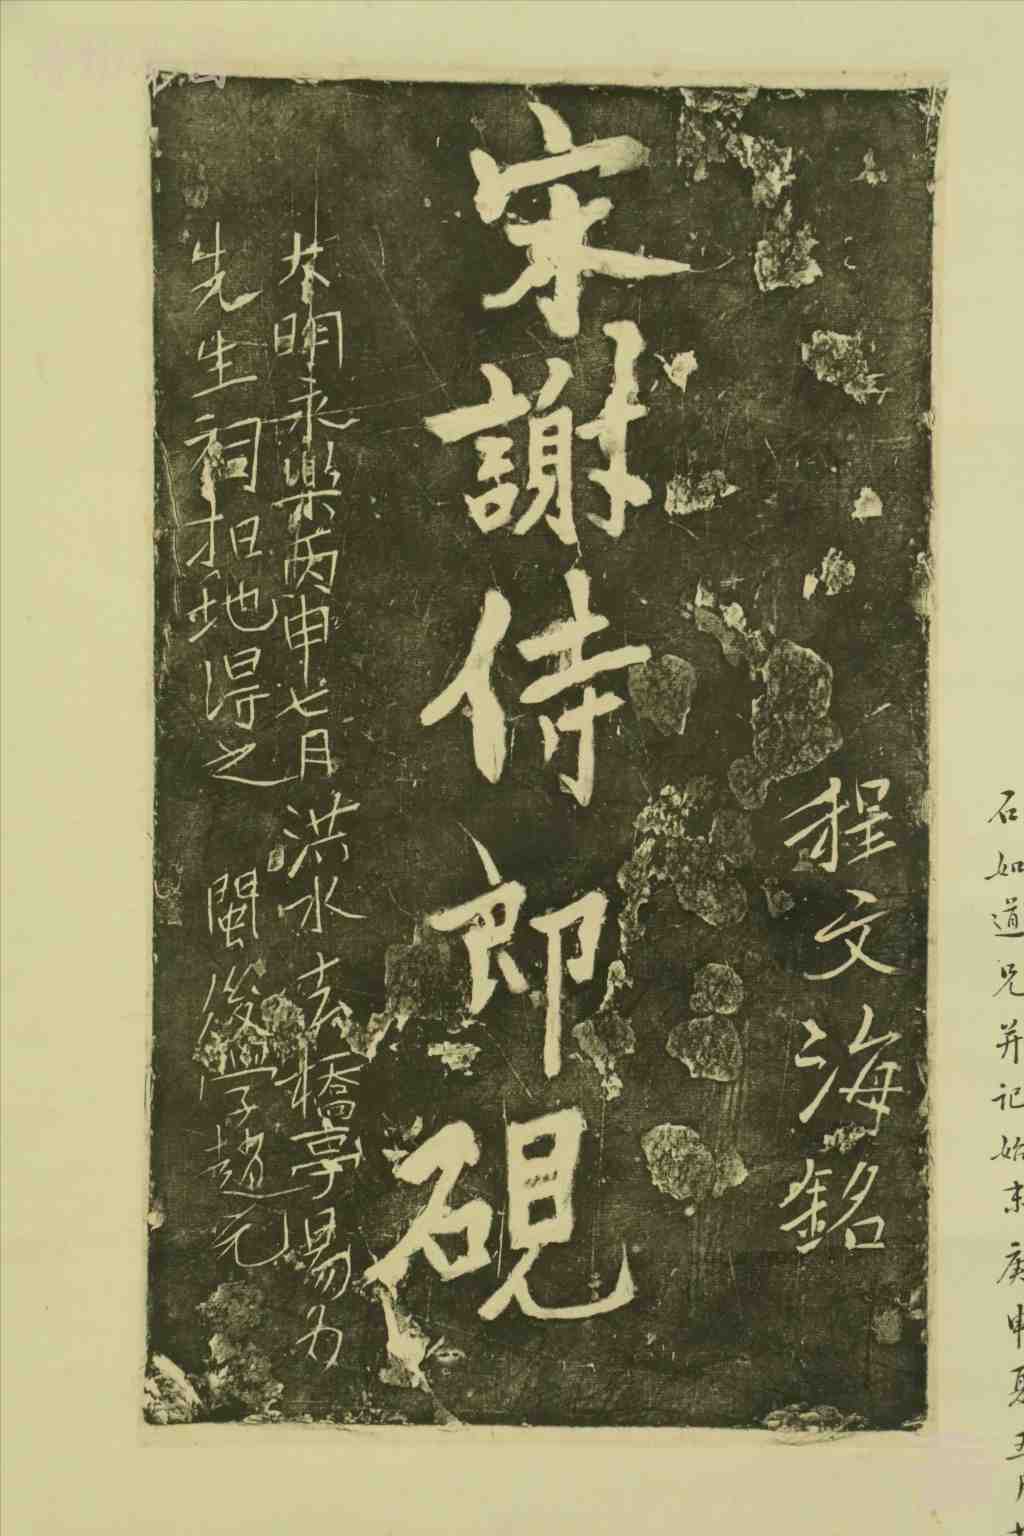 石如道兄并记始末庚申夏五月
程文海銘
宋謝侍郎硯
大明永樂丙申七月洪水去橋亭易为
先生祠掘地得之 閩後學趙元